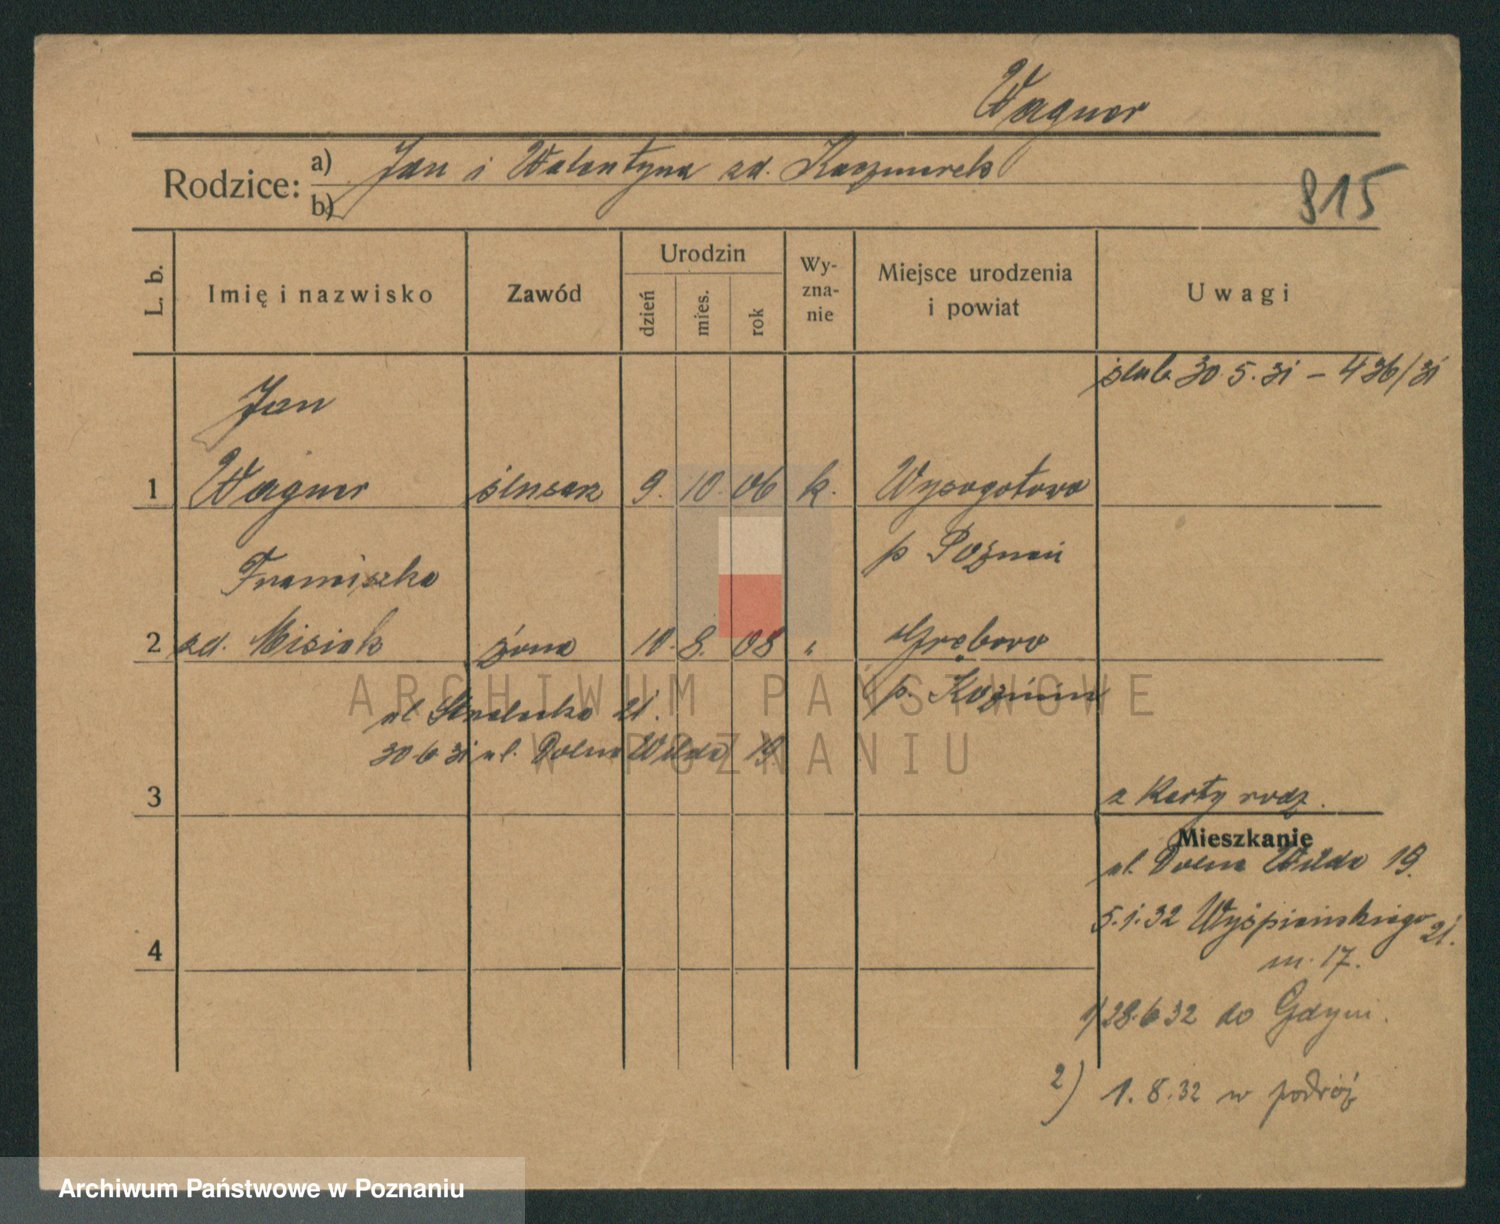 Wagner
Rodzice: a) Jan i Walentyna zd. Kaczmarek
b)
815
L. b.
Imię i nazwisko
Zawód
Urodzin
dzień
mies.
rok
Wy-
zna-
nie
Miejsce urodzenia
i powiat
Uwagi
ślub 30.5.31 – 436/31
Jan
1 Wagner ślusarz 9. 10. 06 k. Wysogotowo
p Poznań
Franciszka
2 zd. Misiak żona 10. 8. 08 " Gręboro
p. Koźmin
ul 21.
30 6 31 ul. Dolna Wilda 19
3
z Karty rodz.
Mieszkanie
ul. Dolna Wilda 19.
5.1.32 Wyspiańskiego 21.
m. 17.
4
1/ 28.6 32 do Gdyni.
2) 1.8.32 w podróż
ARCHIWUM PAŃSTWOWE
W POZNANIU
Archiwum Państwowe w Poznaniu